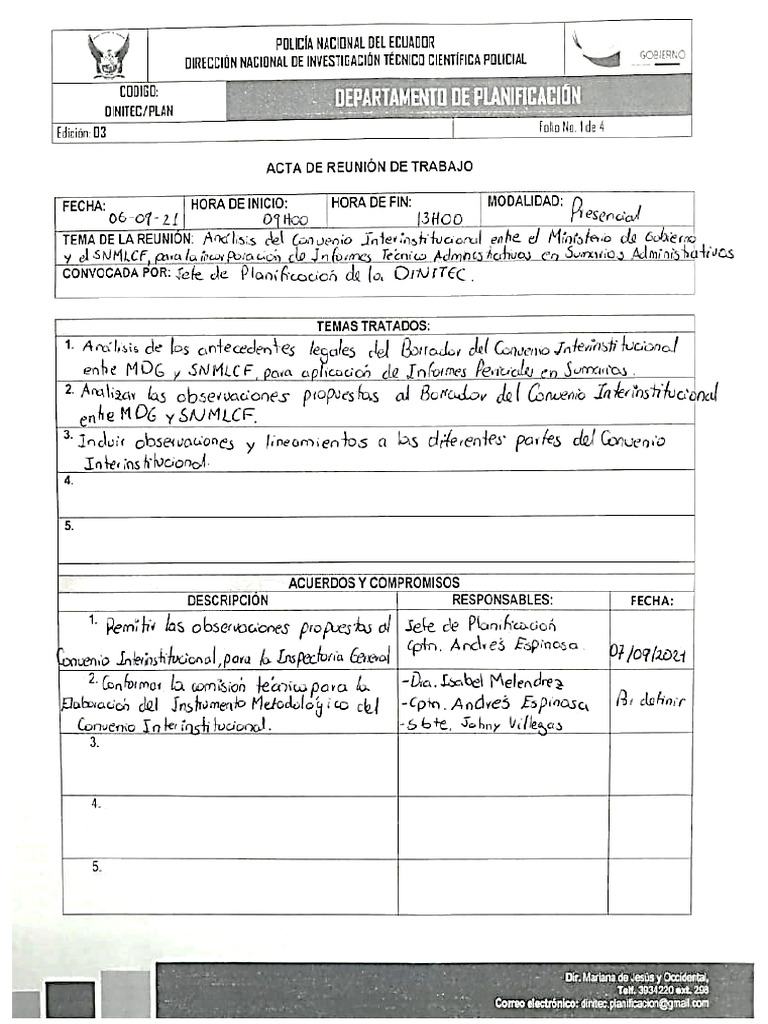 POLICÍA NACIONAL DEL ECUADOR
DIRECCIÓN NACIONAL DE INVESTIGACIÓN TÉCNICO CIENTÍFICA POLICIAL
GOBIERNO
CODIGO:
DINITEC/PLAN
DEPARTAMENTO DE PLANIFICACIÓN
Edición: 03
Folio No. 1 de 4
ACTA DE REUNIÓN DE TRABAJO
FECHA: 06-09-21
HORA DE INICIO: 09H00
HORA DE FIN: 13H00
MODALIDAD: Presencial
TEMA DE LA REUNIÓN: Análisis del Convenio Interinstitucional entre el Ministerio de Gobierno
y el SNMLCF, para la incorporación de Informes Técnico Administrativos en Sumarios Administrativos
CONVOCADA POR: Jefe de Planificación de la DINITEC.
TEMAS TRATADOS:
1. Análisis de los antecedentes legales del Borrador del Convenio Interinstitucional
entre MDG y SNMLCF, para aplicación de Informes Periciales en Sumarios.
2. Analizar las observaciones propuestas al Borrador del Convenio Interinstitucional
entre MDG y SNMLCF.
3. Incluir observaciones y lineamientos a las diferentes partes del Convenio
Interinstitucional.
4.
5.
ACUERDOS Y COMPROMISOS
DESCRIPCIÓN
RESPONSABLES:
FECHA:
1. Remitir las observaciones propuestas al
Convenio Interinstitucional, para la Inspectoria General
Jefe de Planificación
Cptn. Andrés Espinosa.
07/09/2021
2. Conformar la comisión técnico para la
Elaboración del Instrumento Metodológico del
Convenio Interinstitucional.
-Dra. Isabel Melendrez
-Cptn. Andrés Espinosa
-Sbte. Johny Villegas
Por definir
3.
4.
5.
Dir. Mariana de Jesús y Occidental,
Telf. 3934220 ext. 298
Correo electrónico: dinitec.planificacion@gmail.com